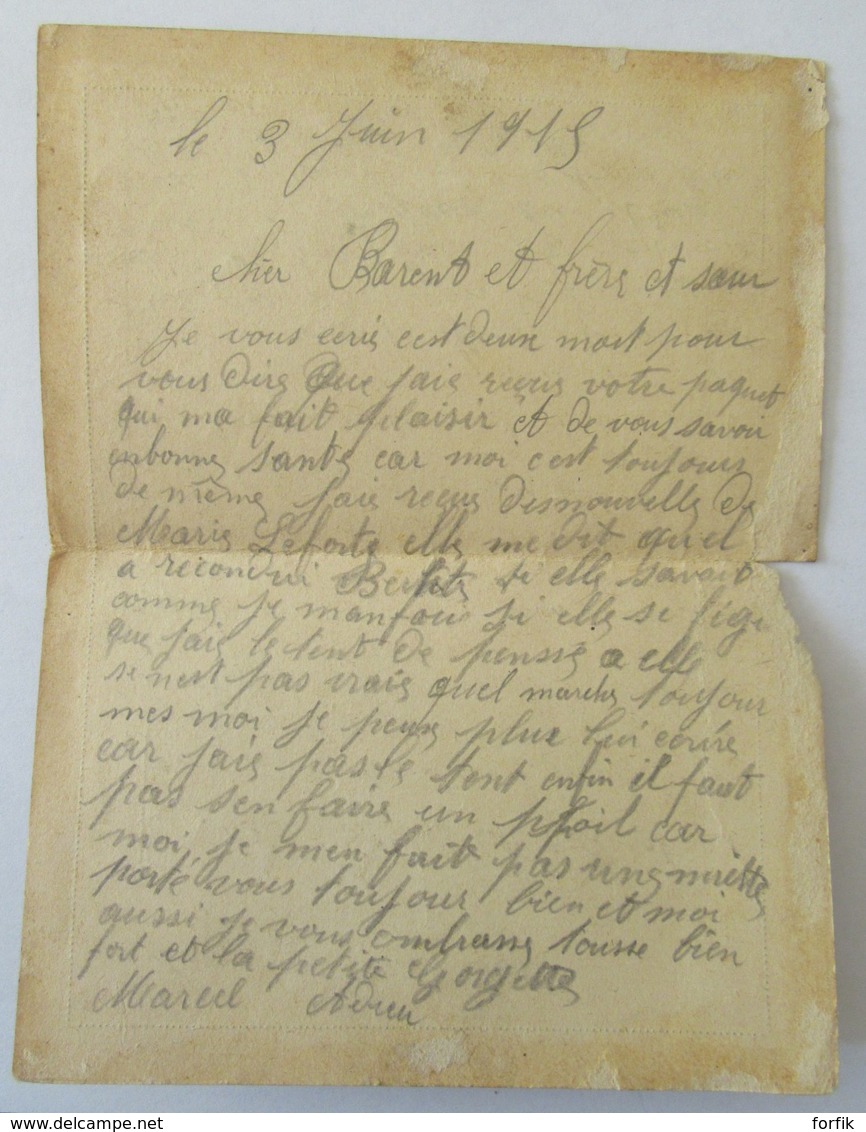 le 3 Juin 1915
cher Parent et frère et sœur
Je vous ecrie cest deux mort pour
vous dire que jaie reçus votre paquet
qui ma fait plaisir et de vous savoir
enbonne santé car moi cest toujours
de même jaie reçue desnouvelle de
Marie Leforte elle me dit qu'el
a recondui si elle savait
comme je manfou si elle se fige
que jaie le tent de pensse a elle
se nest pas vraie quel marche toujour
mes moi je peux plux lui ecrire
car jaie pas le tent enfin il faut
pas sen faire un ploil car
moi je men fait pas une miette
porté vous toujour bien et moi
aussi je vous ombrasse tousse bien
fort et la petite Gorgette
Marcel Adieu
delcampe.net
forfik